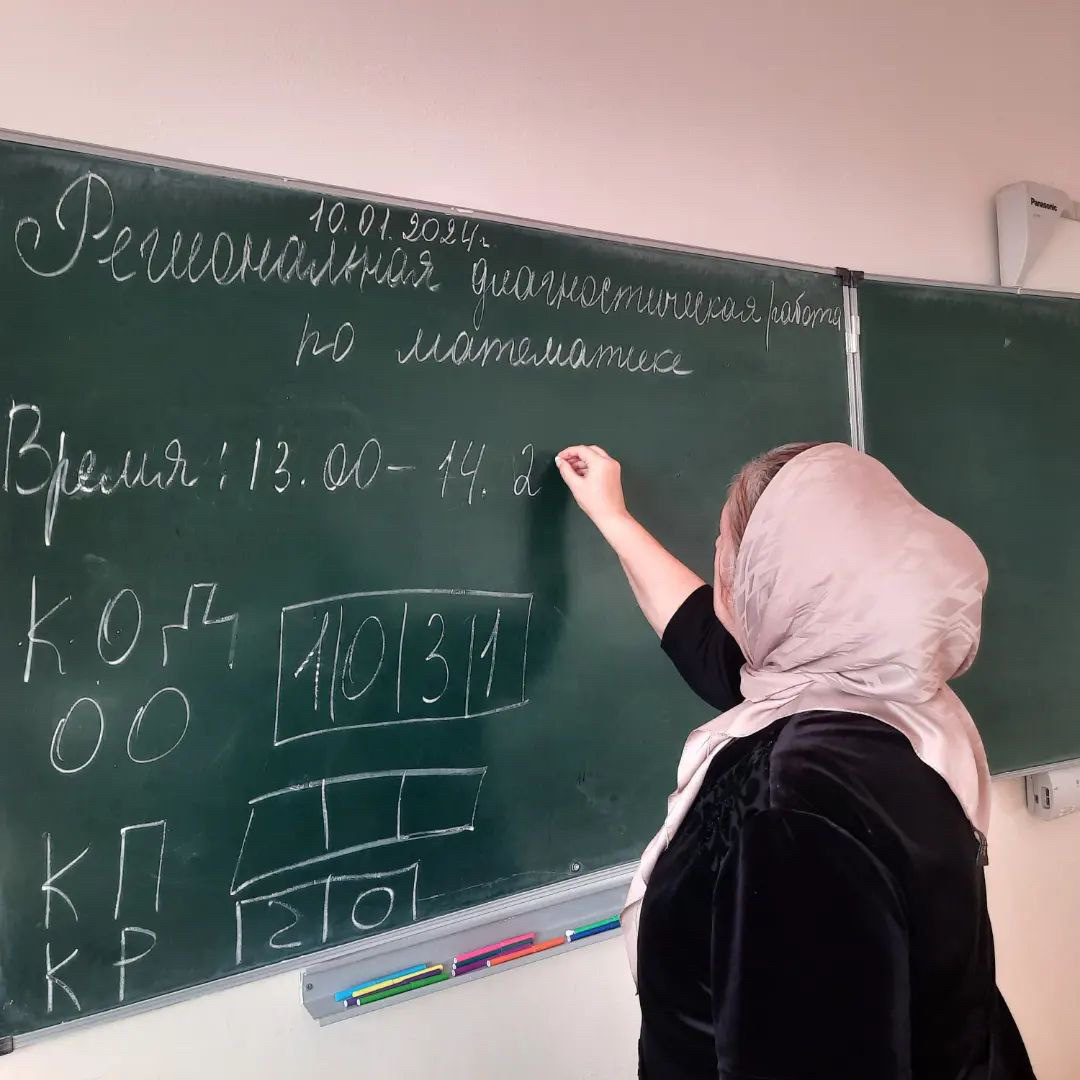 10.01.2024г.
Региональная диагностическая работа
по математике
Время: 13.00 – 14. 2
КОД 1031
ОО
КП
КР 20
Panasonic